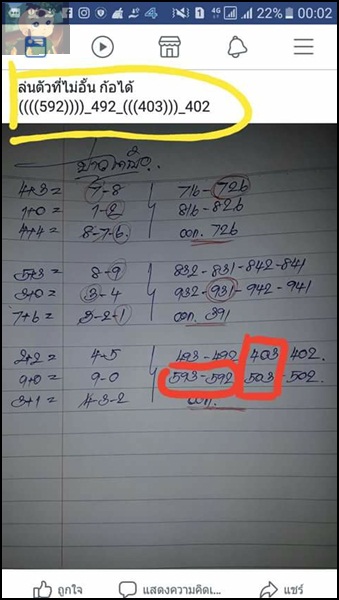 4G 22% 00:02
ล่นตัวที่ไม่อั้น ก้อได้
((((592))))_492_(((403)))_402
4+3= 7-8 716-726
1+0= 1-2 816-826
4+4= 8-7-6. ออก. 726
5+3= 8-9 832-831-842-841
3+0= 3-4 932-931-942-941
7+6= 3-2-1 ออก. 391
2+2= 4-5 493-492 403 402.
9+0= 9-0 593-592 503-502.
3+1= 4-3-2 ออก.
ถูกใจ แสดงความคิดเ... แชร์